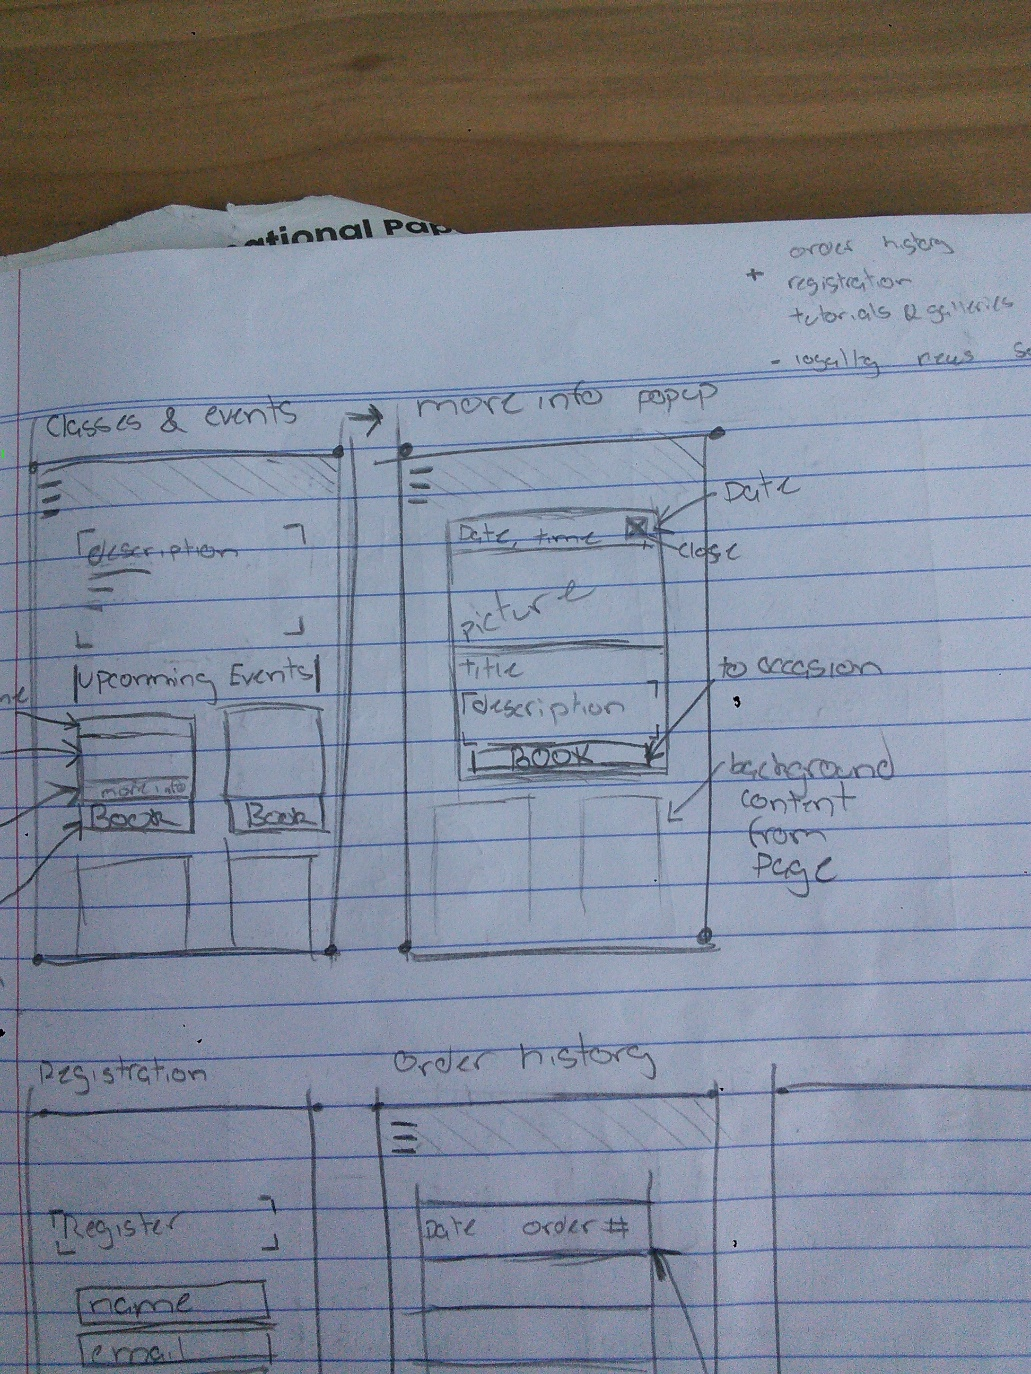 ational Pap
order history
+ registration
tutorials & galleries
- loyalty news
classes & events
more info popup
description
Upcoming Events
more info
Book
Book
Date, time
Date
close
picture
title
description
BOOK
to occasion
background
content
from
page
Registration
Register
name
email
order history
Date order #